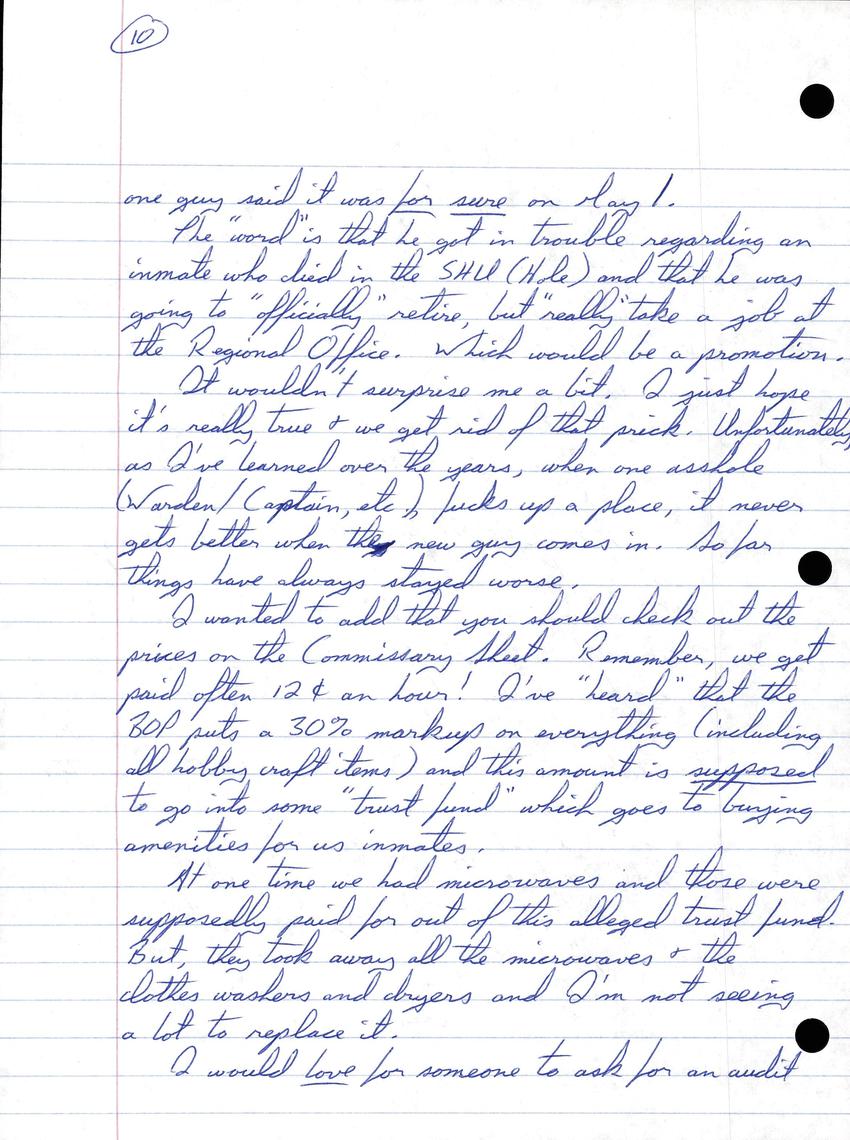 10
one guy said it was for sure on May 1.
The "word" is that he got in trouble regarding an
inmate who died in the SHU (Hole) and that he was
going to "officially" retire, but "really" take a job at
the Regional Office. Which would be a promotion.
It wouldn't surprise me a bit. I just hope
it's really true & we get rid of that prick. Unfortunately,
as I've learned over the years, when one asshole
(Warden/Captain, etc.), fucks up a place, it never
gets better when the new guy comes in. So far
things have always stayed worse.
I wanted to add that you should check out the
prices on the Commissary Sheet. Remember, we get
paid often 12¢ an hour! I've "heard" that the
BOP puts a 30% markup on everything (including
all hobby craft items) and this amount is supposed
to go into some "trust fund" which goes to buying
amenities for us inmates.
At one time we had microwaves and those were
supposedly paid for out of this alleged trust fund.
But, they took away all the microwaves & the
clothes washers and dryers and I'm not seeing
a lot to replace it.
I would love for someone to ask for an audit